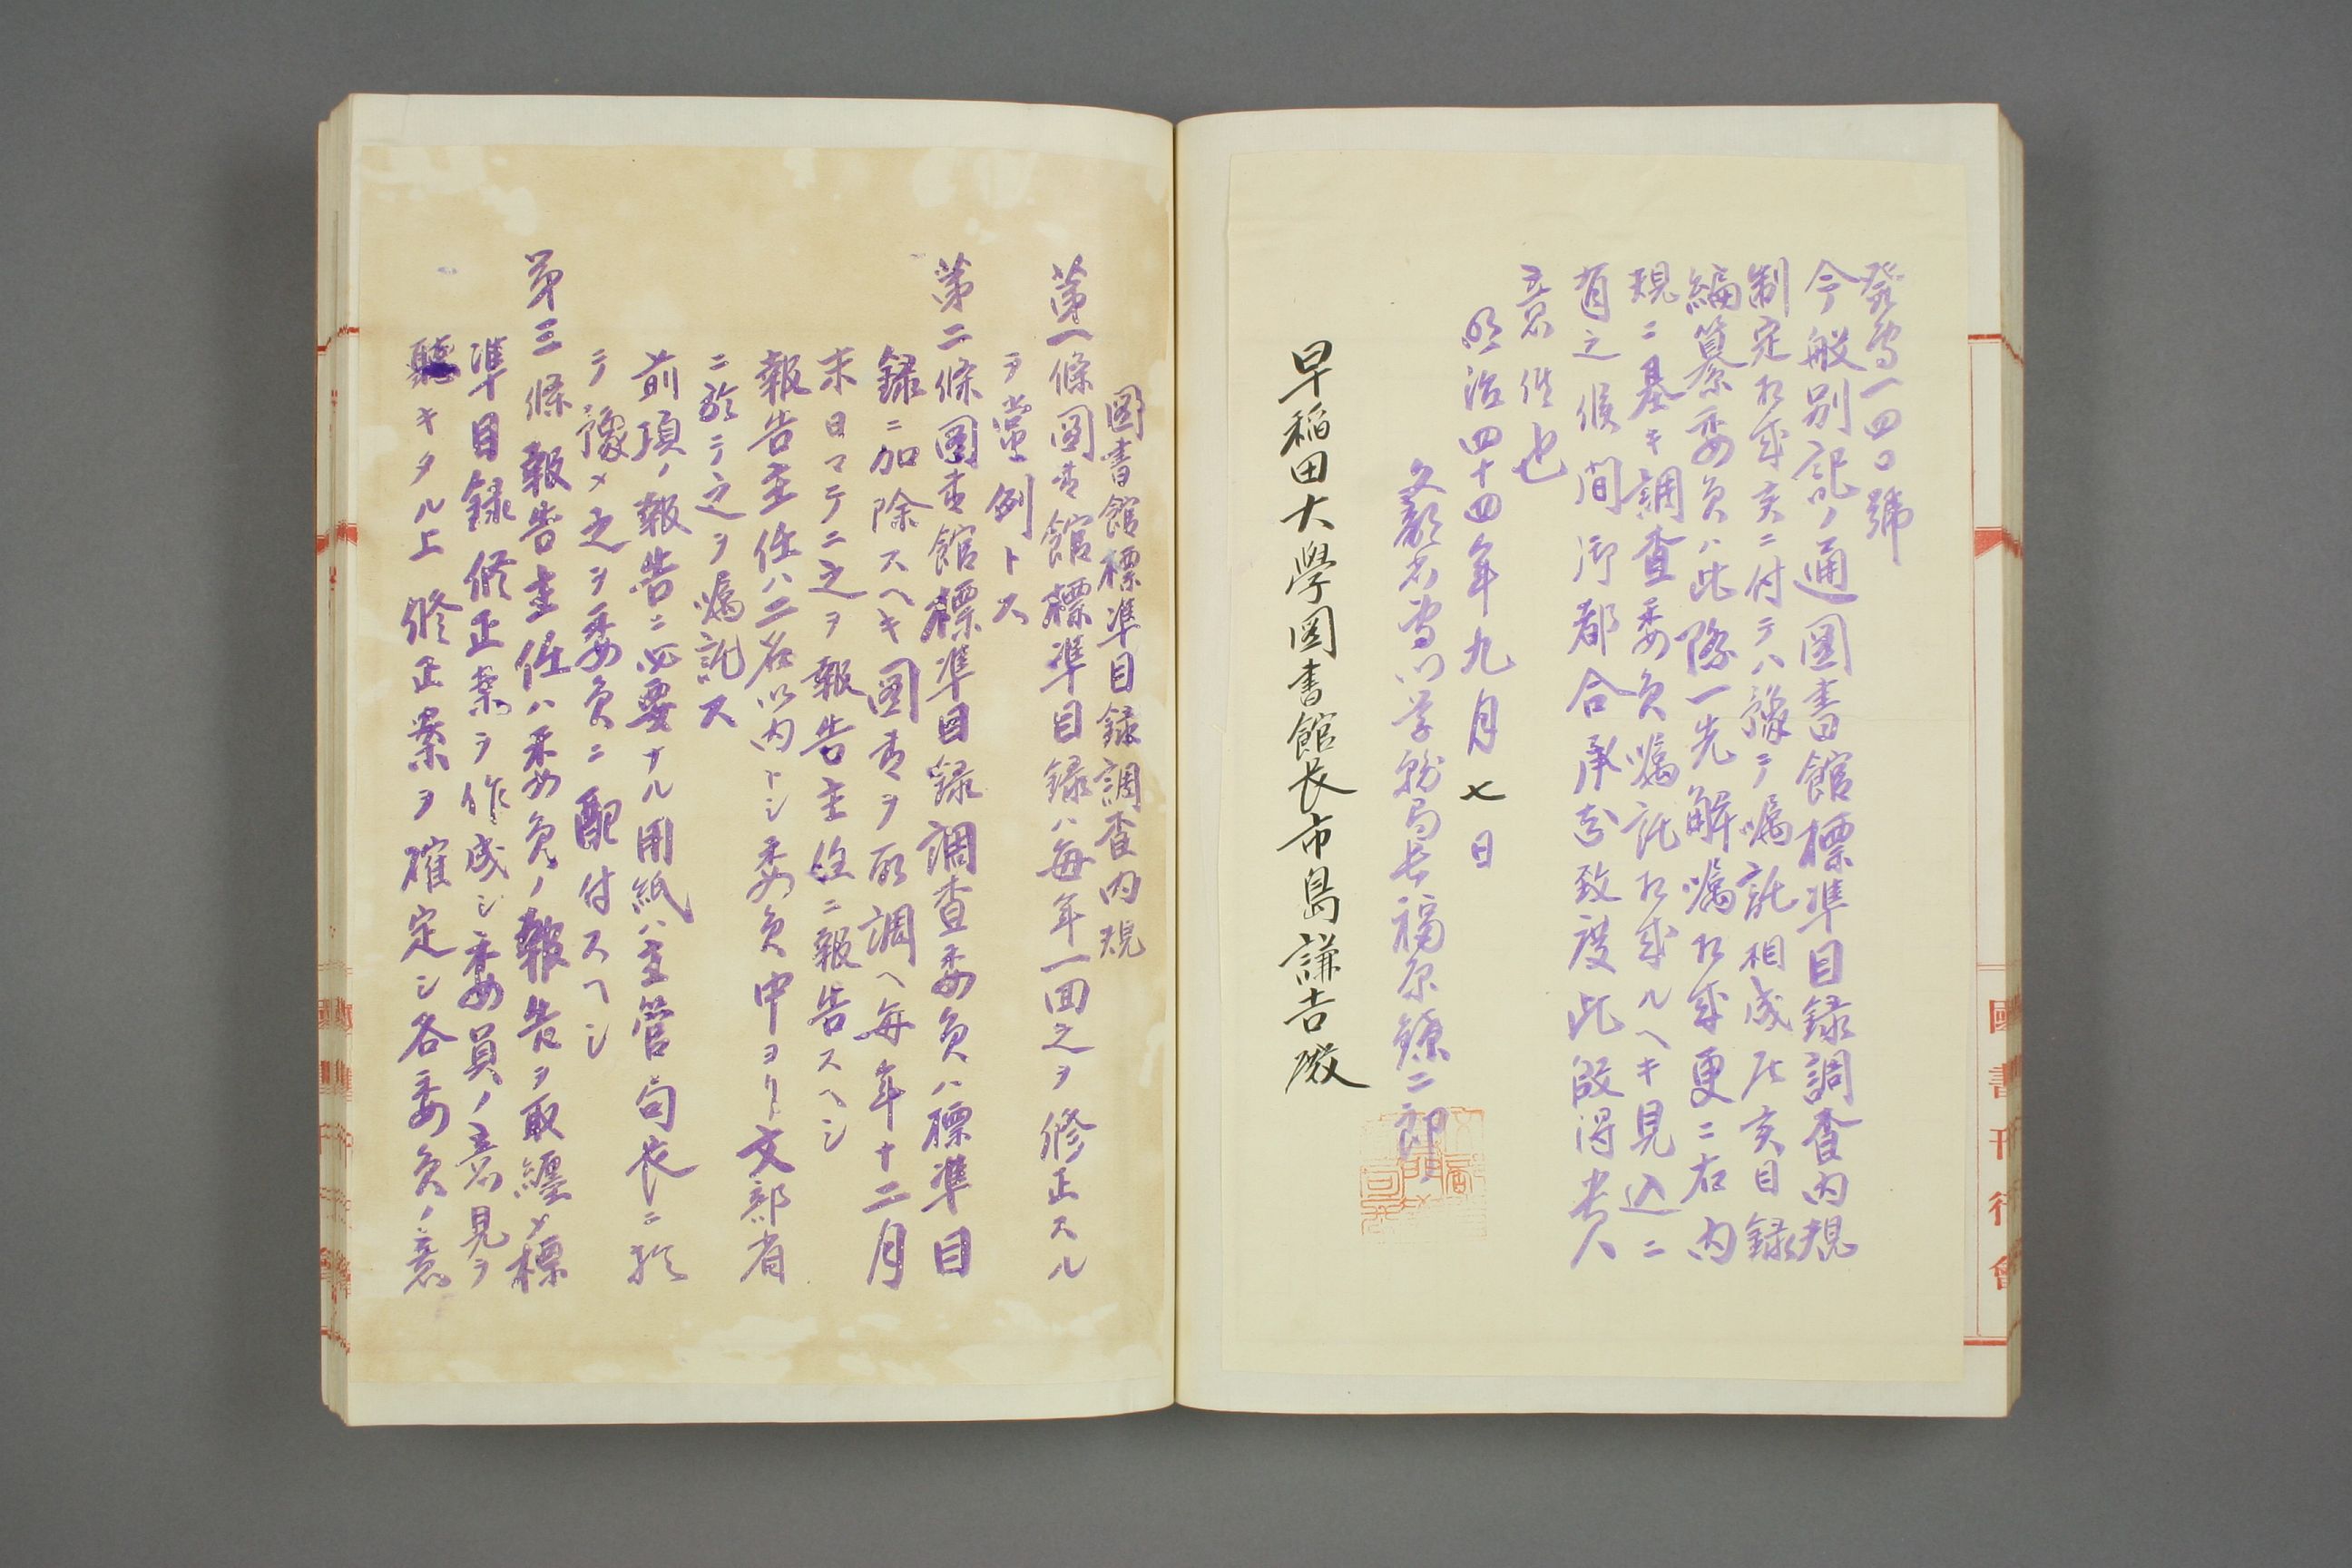 發専一四〇號
今般別記ノ通圖書館標準目録調査内規
制定相成候ニ付テハ豫テ嘱託相成居候目録
編纂委員ハ此際一先解嘱相成更ニ右内
規ニ基キ調査委員嘱託相成ルヘキ見込ニ
有之候間御都合承知致度此段得貴
意候也
明治四十四年九月七日
文部省専門学務局長福原鐐二郎
早稲田大學圖書館長市島謙吉殿
圖書館標準目録調査内規
第一條圖書館標準目録ハ毎年一回之ヲ修正スル
ヲ常例トス
第二條圖書館標準目録調査委員ハ標準目
録ニ加除スヘキ圖書ヲ取調ヘ毎年十二月
末日マテニ之ヲ報告主任ニ報告スヘシ
報告主任ハ二名以内トシ委員中ヨリ文部省
ニ於テ之ヲ嘱託ス
前項ノ報告ニ必要ナル用紙ハ主管局長ニ於
テ豫メ之ヲ委員ニ配付スヘシ
第三條 報告主任ハ委員ノ報告ヲ取纏メ標
準目録修正案ヲ作成シ委員ノ意見ヲ
聽キタル上修正案ヲ確定シ各委員ノ意
國書刊行會